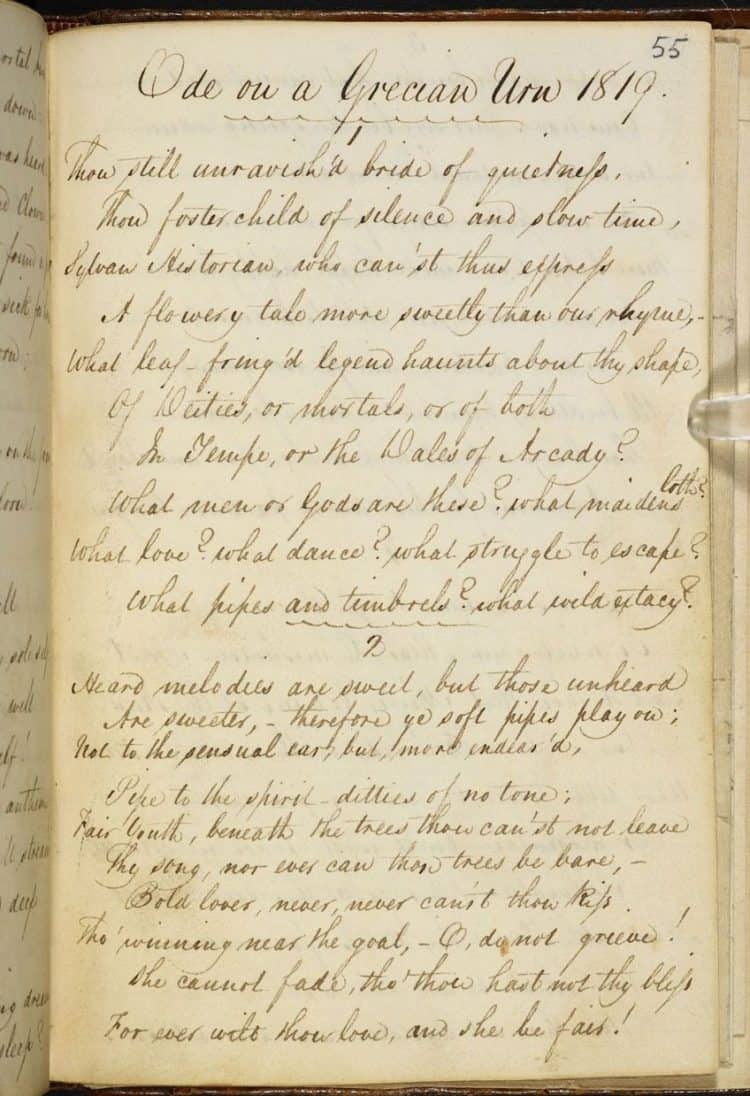 55
Ode on a Grecian Urn 1819.
1
Thou still unravish'd bride of quietness,
Thou foster child of silence and slow time,
Sylvan Historian, who can'st thus express
A flowery tale more sweetly than our rhyme,-
What leaf-fring'd legend haunts about thy shape,
Of Deities, or mortals, or of both
In Tempe, or the Dales of Arcady?
What men or Gods are these? what maidens loth?
What love? what dance? what struggle to escape?
What pipes and timbrels? what wild extacy?
2
Heard melodies are sweet, but those unheard
Are sweeter,- therefore ye soft pipes play on;
Not to the sensual ear, but, more endear'd,
Pipe to the spirit-ditties of no tone;
Fair Youth, beneath the trees thou can'st not leave
Thy song, nor ever can those trees be bare,-
Bold lover, never, never can'st thou kiss
Tho' winning near the goal,- O, do not grieve!
She cannot fade, tho' thou hast not thy bliss
For ever wilt thou love, and she be fair!